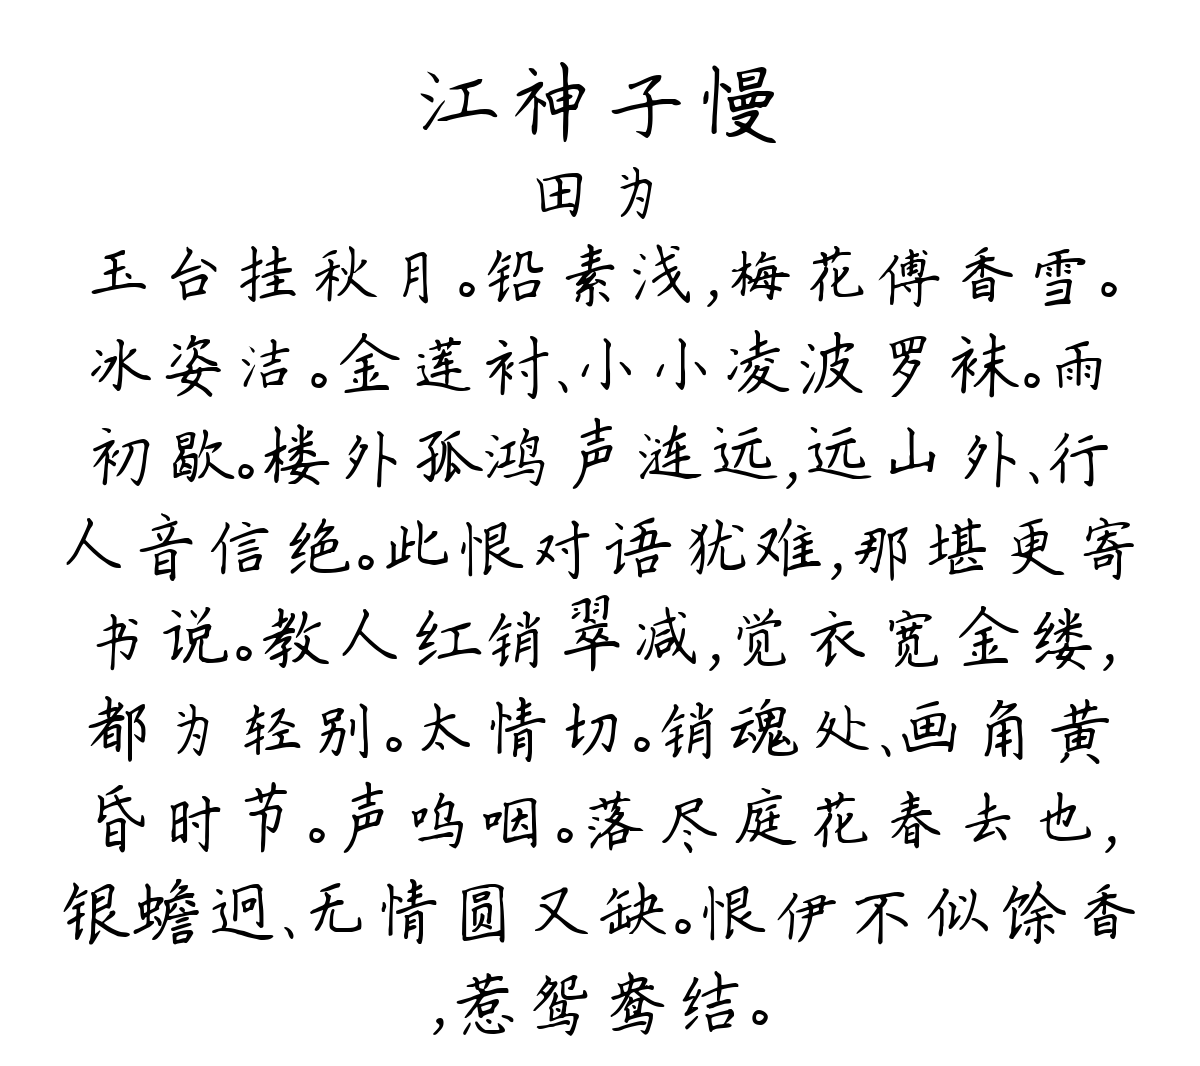 江神子慢
田为
玉台挂秋月。铅素浅,梅花傅香雪。
冰姿洁。金莲衬、小小凌波罗袜。雨
初歇。楼外孤鸿声涟远,远山外、行
人音信绝。此恨对语犹难,那堪更寄
书说。教人红销翠减,觉衣宽金缕,
都为轻别。太情切。销魂处、画角黄
昏时节。声呜咽。落尽庭花春去也,
银蟾迥、无情圆又缺。恨伊不似馀香
,惹鸳鸯结。